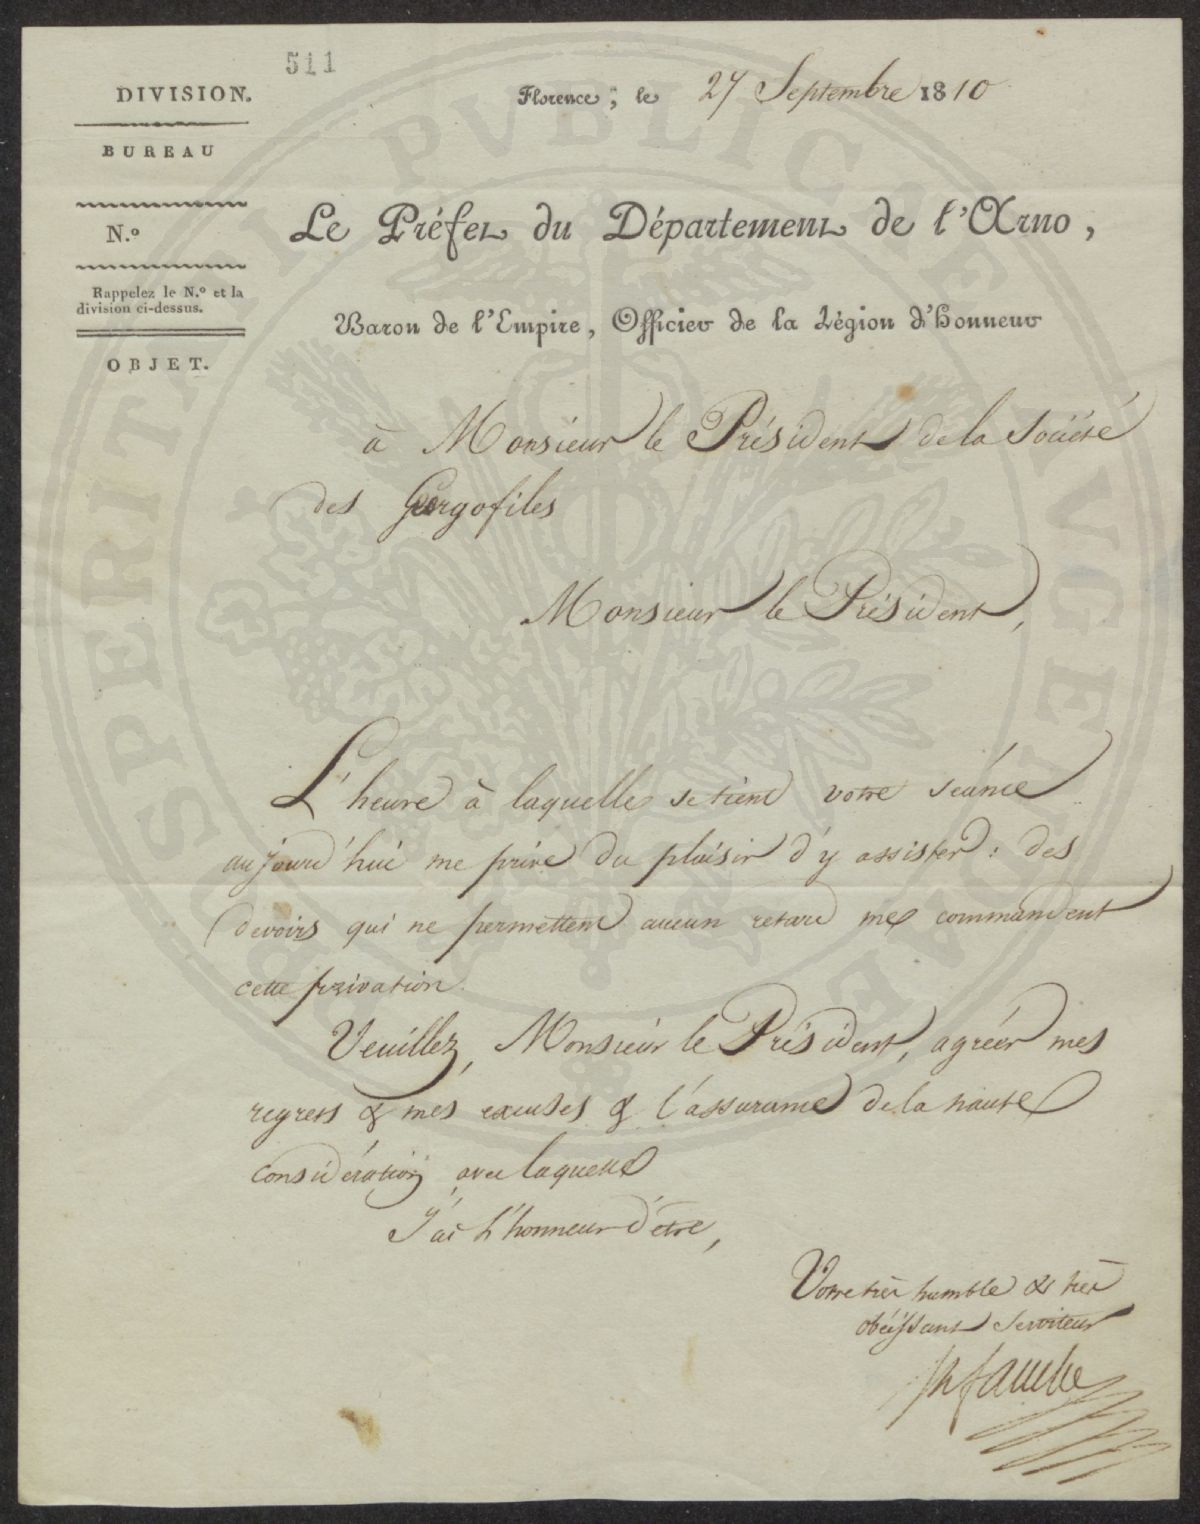 511
DIVISION.
BUREAU
N.º
Rappelez le N.º et la
division ci-dessus.
OBJET.
Florence, le 27 Septembre 1810
Le Préfet du Département de l'Arno,
Baron de l'Empire, Officier de la Légion d'honneur
à Monsieur le Président de la Société
des Georgofiles
Monsieur le Président,
L'heure à laquelle se tient votre séance
aujourd'hui me prive du plaisir d'y assister : des
devoirs qui ne permettent aucun retard me commandent
cette privation.
Veuillez, Monsieur le Président, agréer mes
regrets & mes excuses & l'assurance de la haute
considération avec laquelle
J'ai l'honneur d'être,
Votre très humble & très
obéissant Serviteur
Jh fauchet
PROSPERITATI PVBLICAE AVGENDAE